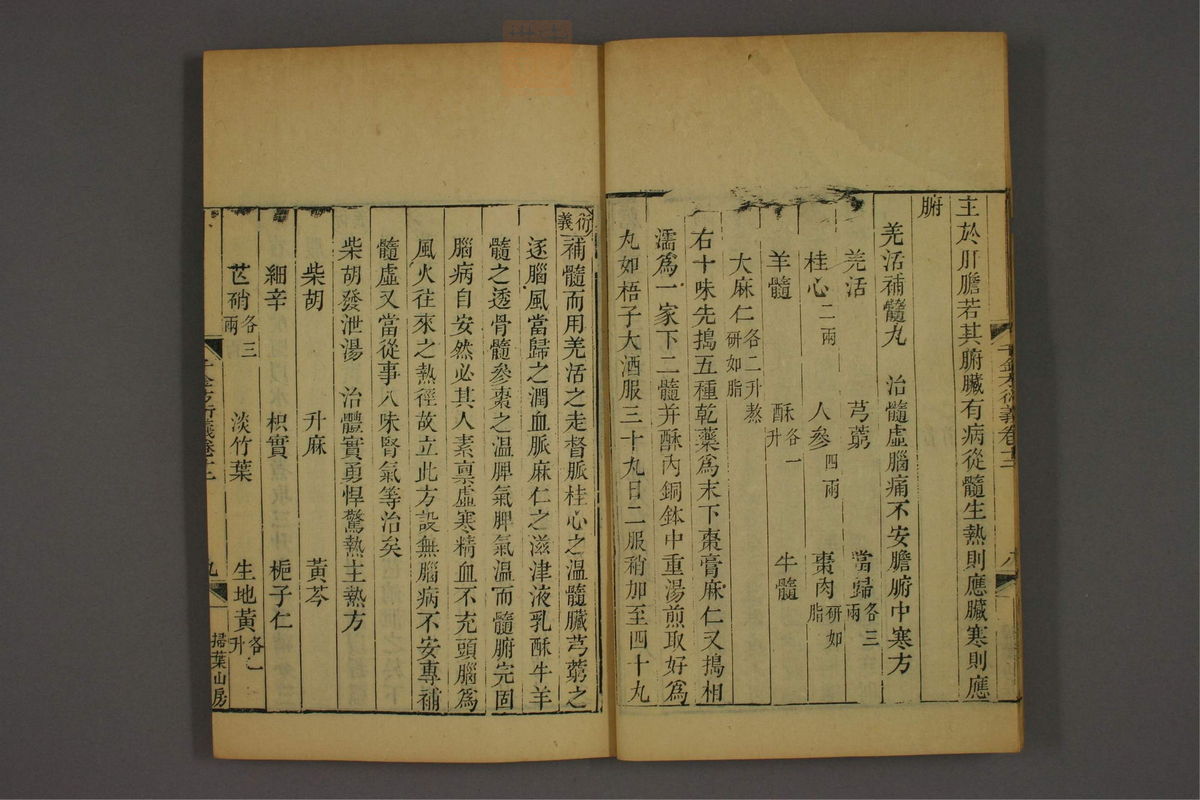 主於肝膽若其腑臟有病從髓生熱則應臟寒則應
腑
羌活補髓丸　治髓虛腦痛不安膽腑中寒方
羌活　芎藭　當歸各三兩
桂心二兩　人參四兩　棗肉研如脂
羊髓　酥各一升　牛髓
大麻仁各二升熬研如脂
右十味先搗五種乾藥爲末下棗膏麻仁又搗相
濡爲一家下二髓并酥內銅鉢中重湯煎取好爲
丸如梧子大酒服三十九日二服稍加至四十丸
衍義補髓而用羌活之走督脈桂心之溫髓臟芎藭之
逐腦風當歸之潤血脈麻仁之滋津液乳酥牛羊
髓之透骨髓參棗之溫脾氣脾氣溫而髓腑完固
腦病自安然必其人素稟虛寒精血不充頭腦爲
風火往來之熱徑故立此方設無腦病不安專補
髓虛又當從事八味腎氣等治矣
柴胡發泄湯　治髓實勇悍驚熱主熱方
柴胡　升麻　黃芩
細辛　枳實　梔子仁
芒硝各三兩　淡竹葉　生地黃各一升
千金方衍義卷十二　九　掃葉山房